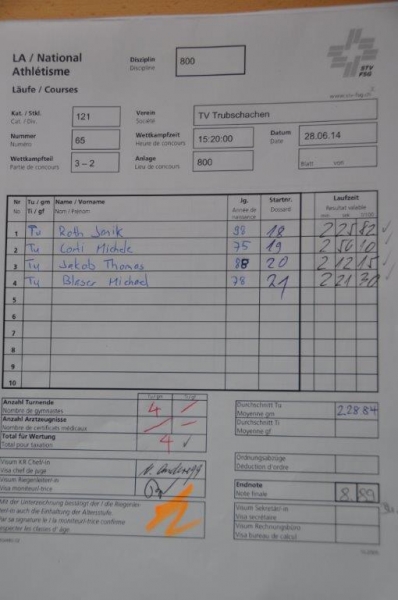 LA / National
Athlétisme
Läufe / Courses
Disziplin
Discipline
800
STV
FSG
Kat. / Stkl.
Cat. / Div.
121
Verein
Société
TV Trubschachen
Nummer
Numéro
65
Wettkampfzeit
Heure de concours
15:20:00
Datum
Date
28.06.14
Wettkampfteil
Partie de concours
3 – 2
Anlage
Lieu de concours
800
Blatt von
Nr Tu / gm Name / Vorname Jg. Startnr. Laufzeit
Nr. Ti / gf Nom / Prénom Année de naissance Dossard Resultat
1 Tu Roth Janik 98 18 2 25 82
2 Tu Michele 75 19 2 56 10
3 Tu Jakob Thomas 88 20 2 12 15
4 Tu Blaser Michael 78 21 2 21 30
5
6
7
8
9
10
Anzahl Turnende
Nombre de gymnastes
4
Anzahl Arztzeugnisse
Nombre de certificats médicaux
Total für Wertung
Total pour taxation
4
Durchschnitt Tu
Moyenne gm
2.28.84
Durchschnitt Ti
Moyenne gf
Ordnungsabzüge
Déduction d'ordre
Visum KR Chef/-in
Visa chef de juge
Visum Riegenleiter/-in
Visa moniteur/-trice
Endnote
Note finale
8.89
Visum Sekretär/-in
Visa secrétaire
Visum Rechnungsbüro
Visa bureau de calcul
Mit der Unterzeichnung bestätigt der / die Riegenlei-
ter/-in auch die Einhaltung der Altersstufe.
Par sa signature le / la moniteur/-trice confirme
respecter les classes d'âge.